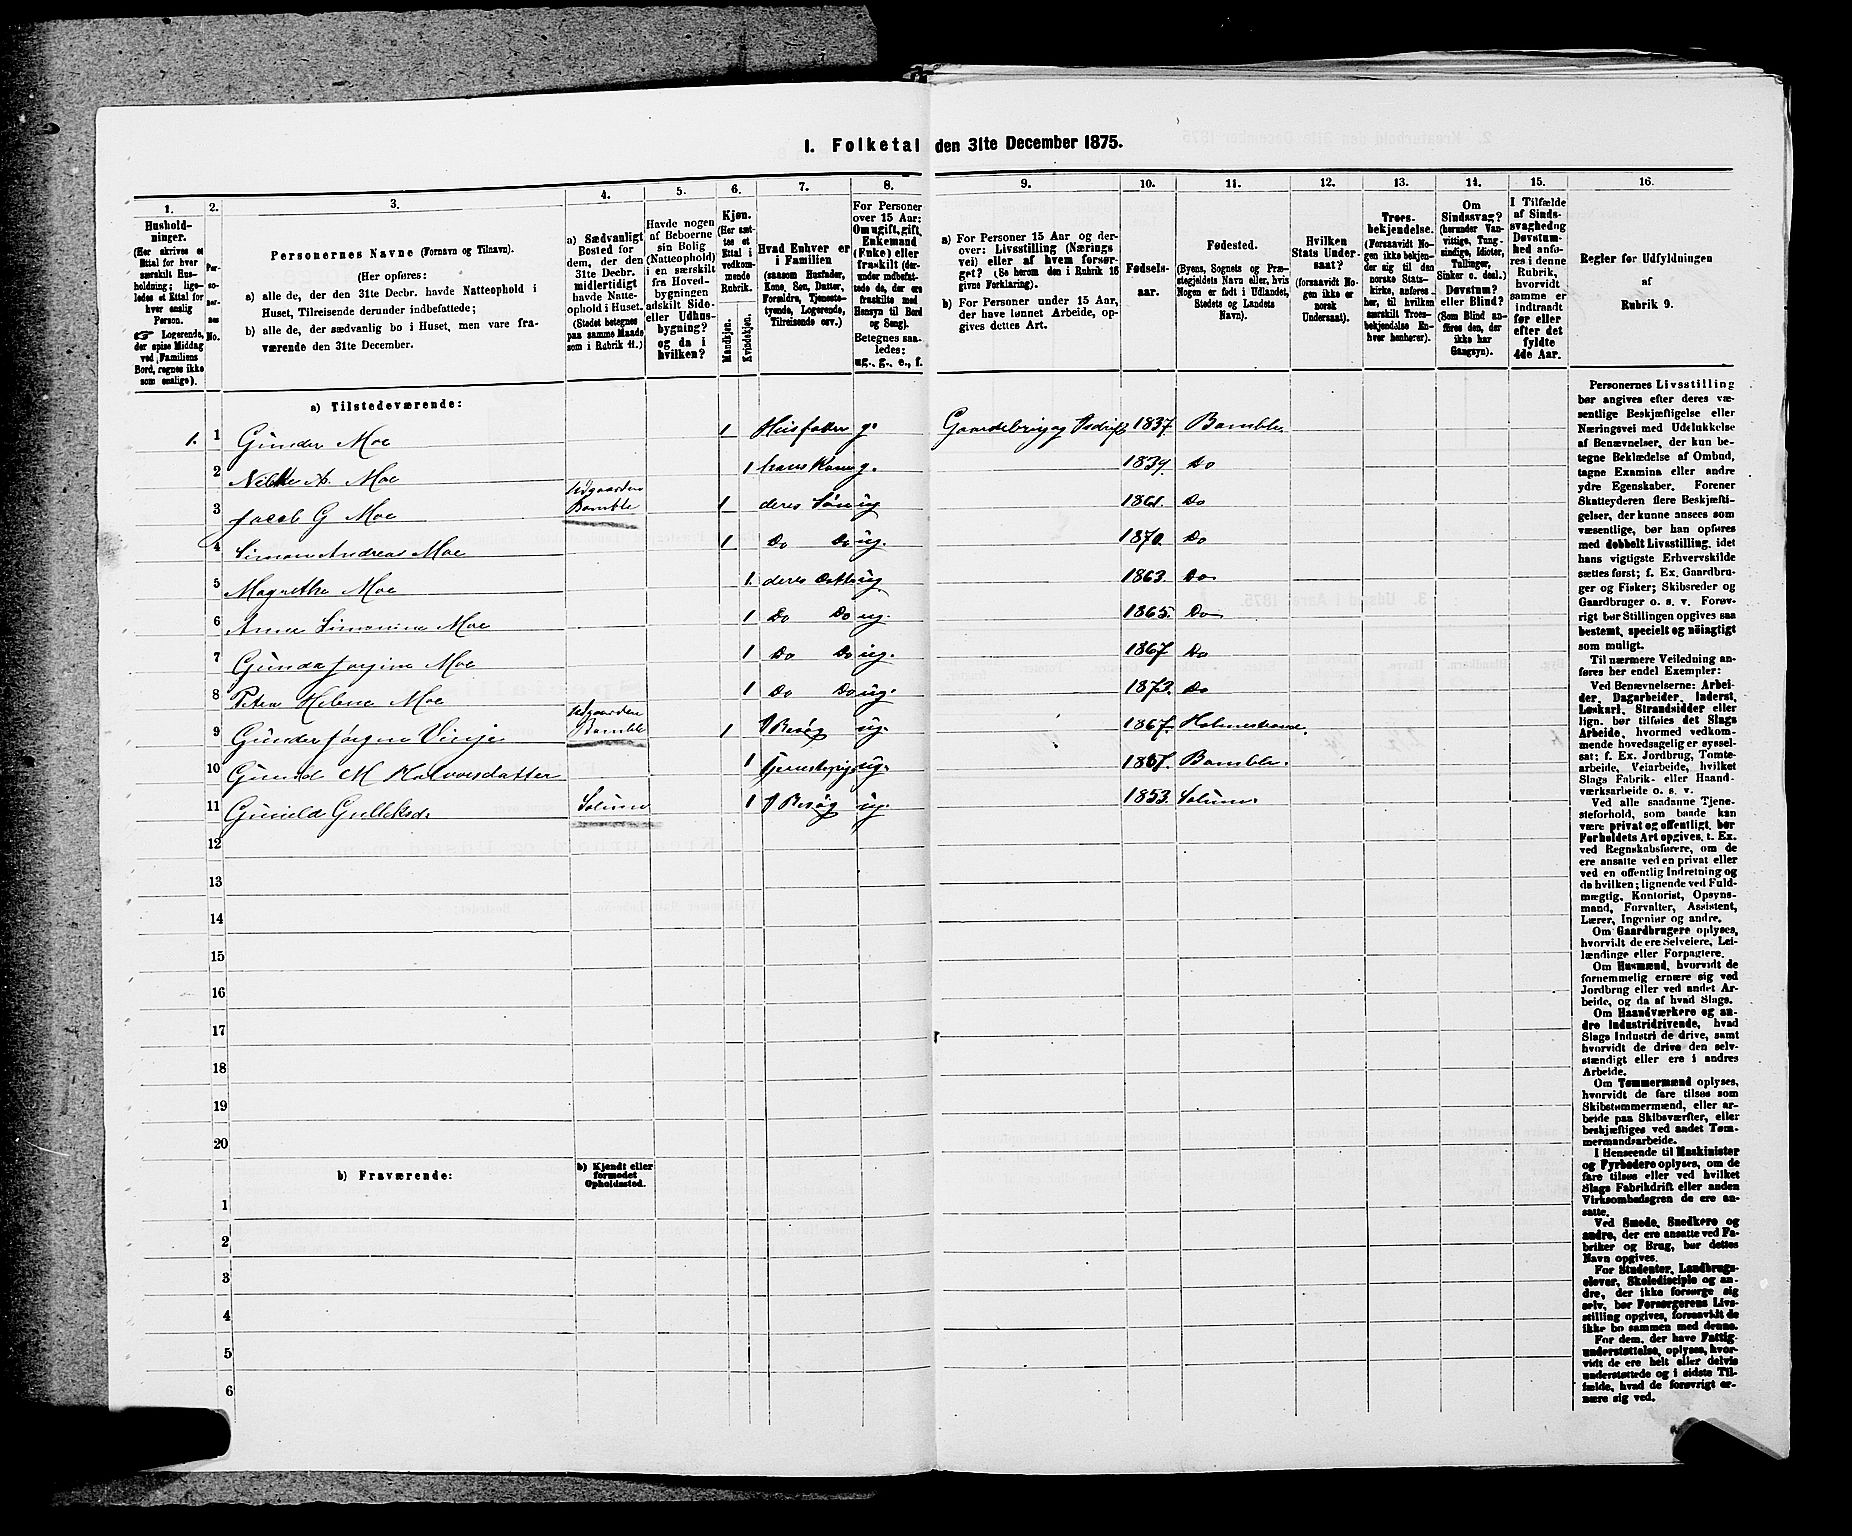 I. Folketal den 31te December 1875.
1.
Husholdninger.
(Her skrives et
Ettal for hver
særskilt Husholdning; ligeledes
et Ettal for
hver enslig
Person.
Logerende,
der spise Middag
ved Familiens
Bord, regnes ikke
som enslige).
2.
Personernes
No.
3.
Personernes Navne (Fornavn og Tilnavn).
(Her opføres:
a) alle de, der den 31te Decbr. havde Natteophold i
Huset, Tilreisende derunder indbefattede;
b) alle de, der sædvanlig bo i Huset, men vare fraværende
den 31te December.
4.
a) Sædvanligt
Bosted for
dem, der den
31te Decbr.
midlertidigt
havde Natteophold
i Huset.
(Stedet betegnes
paa samme Maade
som i Rubrik 11.)
5.
Havde nogen
af Beboerne
sin Bolig
(Natteophold)
i en særskilt
fra Hovedbygningen
adskilt Side-
eller Udhusbygning?
og da i
hvilken?
6.
Kjøn.
(Her sættes
et
Ettal i
vedkommende
Rubrik.
Mandkjøn.
Kvindekjøn.
7.
Hvad Enhver er
i Familien
(saasom Husfader,
Kone, Søn, Datter,
Forældre, Tjenestetyende,
Logerende,
Tilreisende osv.)
8.
For Personer
over 15 Aar:
Om ugift, gift,
Enkemand
(Enke) eller
fraskilt (derunder
indbefattede
de, der ere
fraskilte med
Hensyn til Bord
og Seng).
Betegnes saaledes:
ug., g., e., f.
9.
a) For Personer 15 Aar og derover:
Livsstilling (Næringsvei)
eller af hvem forsørget?
(Se herom den i Rubrik 16
givne Forklaring).
b) For Personer under 15 Aar,
der have lønnet Arbeide, opgives
dettes Art.
10.
Fødselsaar.
11.
Fødested.
(Byens, Sognets og Præstegjeldets
Navn eller, hvis
Nogen er født i Udlandet,
Stedets og Landets
Navn).
12.
Hvilken
Stats Undersaat?
(forsaavidt Nogen
ikke er
norsk
Undersaat).
13.
Troesbekjendelse.
(Forsaavidt Nogen
ikke bekjender
sig til den
norske Statskirke,
anføres
her, til hvilken
særskilt Troesbekjendelse
Enhver
henhører).
14.
Om
Sindssvag?
(herunder Vanvittige,
Tungsindige,
Idioter,
Tullinger,
Sinker o. desl.)
Døvstum?
eller Blind?
(Som Blind anføres
den, der
ikke har
Gangsyn).
15.
I Tilfælde
af Sindssvaghed
og
Døvstumhed
anføres
i denne
Rubrik,
hvorvidt
samme er
indtraadt
før eller
efter det
fyldte
4de Aar.
16.
Regler for Udfyldningen
af
Rubrik 9.
a) Tilstedeværende:
1. 1 Gunder Moe 1 Husfader g. Gaardebrug og 1837. Bamble.
2 A. Moe 1 hans Kone g. Do
3 Jacob G Moe Bamble 1 deres Søn ug 1861. Do
4 Simon Andreas Moe 1 Do Do ug. 1870. Do
5 Magrethe Moe 1. deres ug. 1863. Do
6 Anne Simonine Moe 1 Do Do ug. 1865. Do
7 Gunda Jorgine Moe 1 Do Do ug. 1867 Do
8 Helene Moe 1 Do Do ug. 1873. Do
9 Gunder Jørgen Vinje Bamble 1 Besøg ug. 1867. Holmestrand.
10 M Halvorsdatter 1 ug. Bamble.
11 Gunild Solum 1 Besøg ug. 1853. Solum.
12
13
14
15
16
17
18
19
20
b) Fraværende:
b) Kjendt eller
formodet
Opholdssted.
1
2
3
4
5
6
Personernes Livsstilling
bør angives efter deres væsentlige
Beskjæftigelse eller
Næringsvei med Udelukkelse
af Benævnelser, der kun betegne
Beklædelse af Ombud,
tagne Examina eller andre
ydre Egenskaber. Forener
Skatteyderen flere Beskjæftigelser,
der kunne ansees som
væsentlige, bør han opføres
med dobbelt Livsstilling, idet
hans vigtigste Erhvervskilde
sættes først; f. Ex. Gaardbruger
og Fisker; Skibsreder og
Gaardbruger o. s. v. Forøvrigt
bør Stillingen opgives saa
bestemt, specielt og nøiagtigt
som muligt.
Til nærmere Veiledning anføres
her endel Exempler:
Ved Benævnelserne: Arbeider,
Dagarbeider, Inderst,
Løskarl, Strandsidder eller
lign. bør tilføies det Slags
Arbeide, hvormed vedkommende
hovedsagelig er sysselsat;
f. Ex. Jordbrug, Tomtearbeide,
Veiarbeide, hvilket
Slags Fabrik- eller Haandværksarbeide
o. s. v.
Ved alle saadanne Tjenesteforhold,
som baade kan
være privat og offentligt, bør
Forholdets Art opgives, t. Ex.
ved Regnskabsførere, om de
ere ansatte ved en privat eller
ved en offentlig Indretning og
da hvilken; lignende ved Fuldmægtig,
Kontorist, Opsynsmand,
Forvalter, Assistent,
Lærer, Ingeniør og andre.
Om Gaardbrugere oplyses,
hvorvidt de ere Selveiere, Leilændinge
eller Forpagtere.
Om Husmænd, hvorvidt de
fornemmelig ernære sig ved
Jordbrug eller ved andet Arbeide,
og da af hvad Slags.
Om Haandværkere og andre
industridrivende, hvad
Slags Industri de drive, samt
hvorvidt de drive den selvstændigt
eller ere i andres
Arbeide.
Om Tømmermænd oplyses,
hvorvidt de fare tilsøs som
Skibstømmermænd, eller arbeide
paa Skibsværfter, eller
beskjæftiges ved andet Tømmermandsarbeide.
I Henseende til Maskinister
og Fyrbødere oplyses, om de
fare tilsøs eller ved hvilket
Slags Fabrikdrift eller anden
Virksomhedsgren de ere ansatte.
Ved Smede, Snedkere og
andre, der ere ansatte ved Fabriker
og Brug, bør dettes
Navn opgives.
For Studenter, Landbrugselever,
Skoledisciple og andre,
der ikke forsørge sig
selv, bør Forsørgerens Livsstilling
opgives, forsaavidt de
ikke bo sammen med denne.
For dem, der have Fattigunderstøttelse,
oplyses, hvorvidt
de ere helt eller delvis
understøttede og i sidste Tilfælde,
hvad de forøvrigt ernære
sig ved.